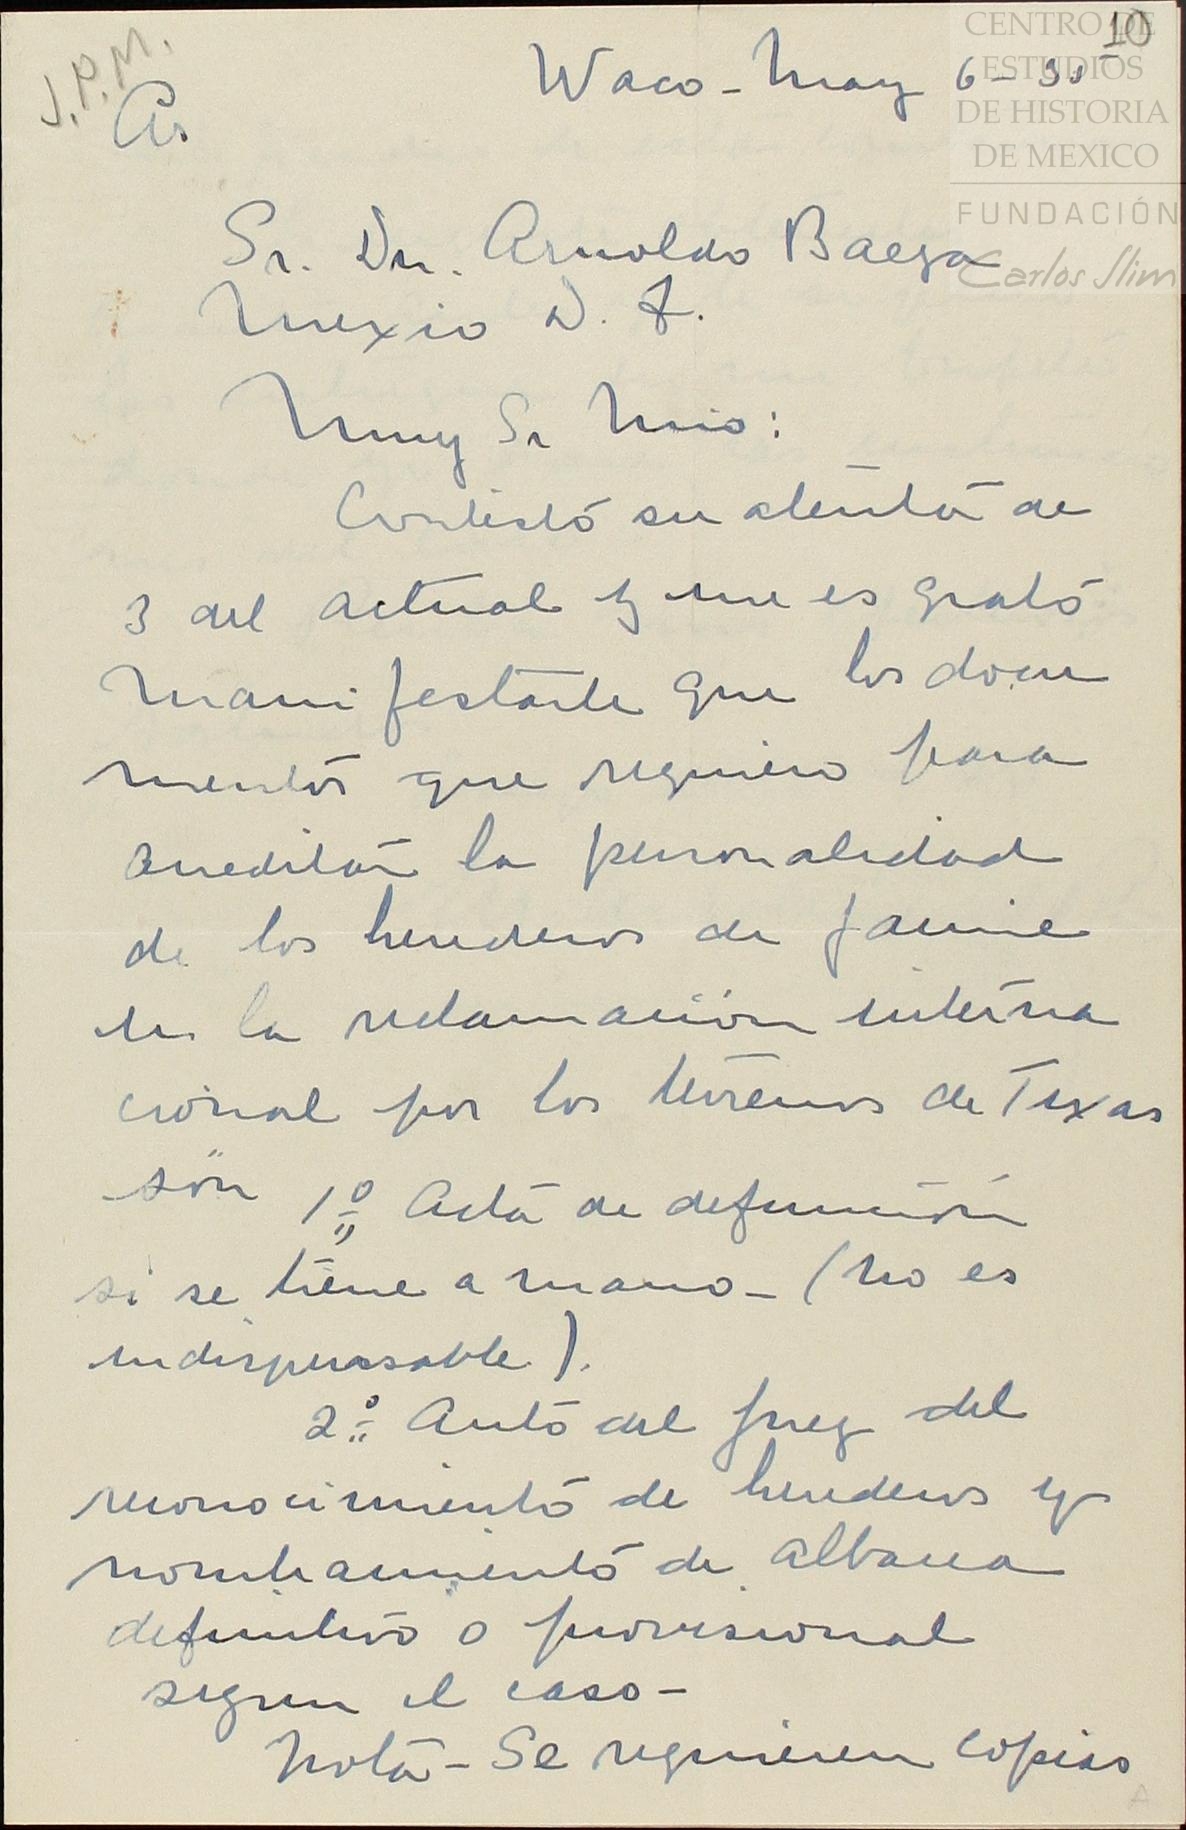 J.P.M.
10
CENTRO DE
ESTUDIOS
DE HISTORIA
DE MEXICO
FUNDACIÓN
Carlos Slim
Waco - May 6 -
Sr. Dn. Arnoldo Baeza
Mexico D. F.
Muy Sr Mio:
Contesto su atenta de
3 del actual y me es grato
manifestarle que los docu
mentos que requiero para
acreditar la personalidad
de los herederos de Jaime
en la reclamación interna
cional por los terrenos de Texas
son 1º Acta de defunción
si se tiene a mano - (no es
indispensable).
2º Auto del Juez del
reconocimiento de herederos y
nombramiento de albacea
definitivo o provisional
segun el caso -
Nota - Se requieren copias